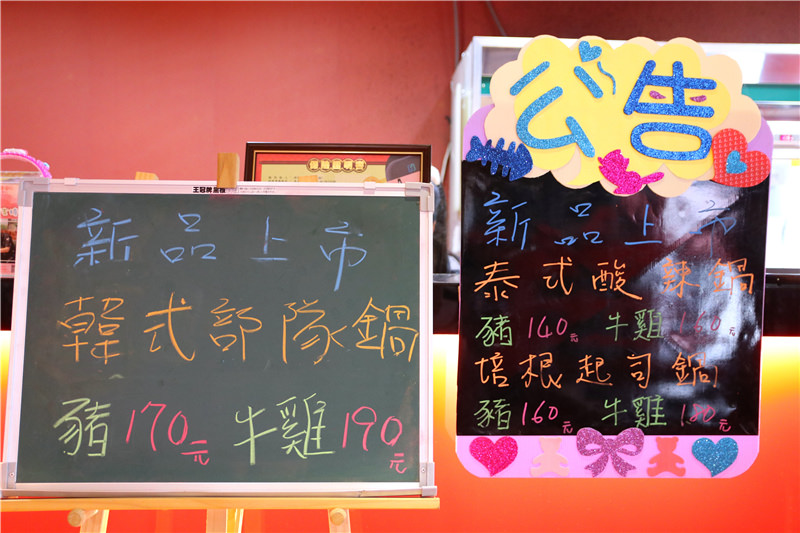 王冠牌黑板
新品上市
韓式部隊鍋
豬170元 牛雞190元
公告
新品上市
泰式酸辣鍋
豬140元 牛雞160元
培根起司鍋
豬160元 牛雞180元